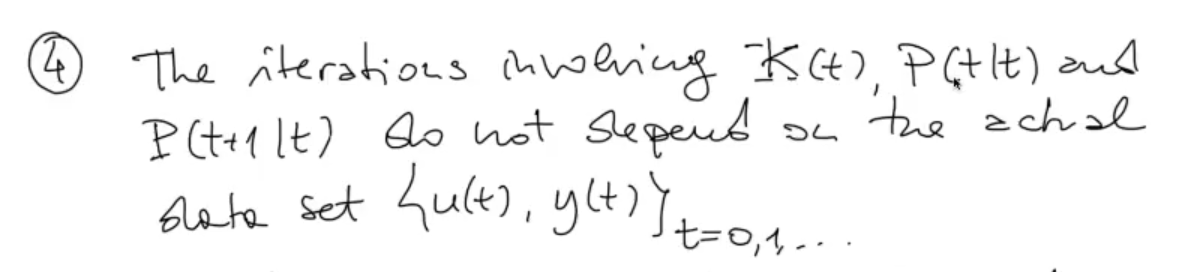 ④ The iterations involving K(t), P(t|t) and
P(t+1|t) do not depend on the actual
data set {u(t), y(t)}t=0,1,...